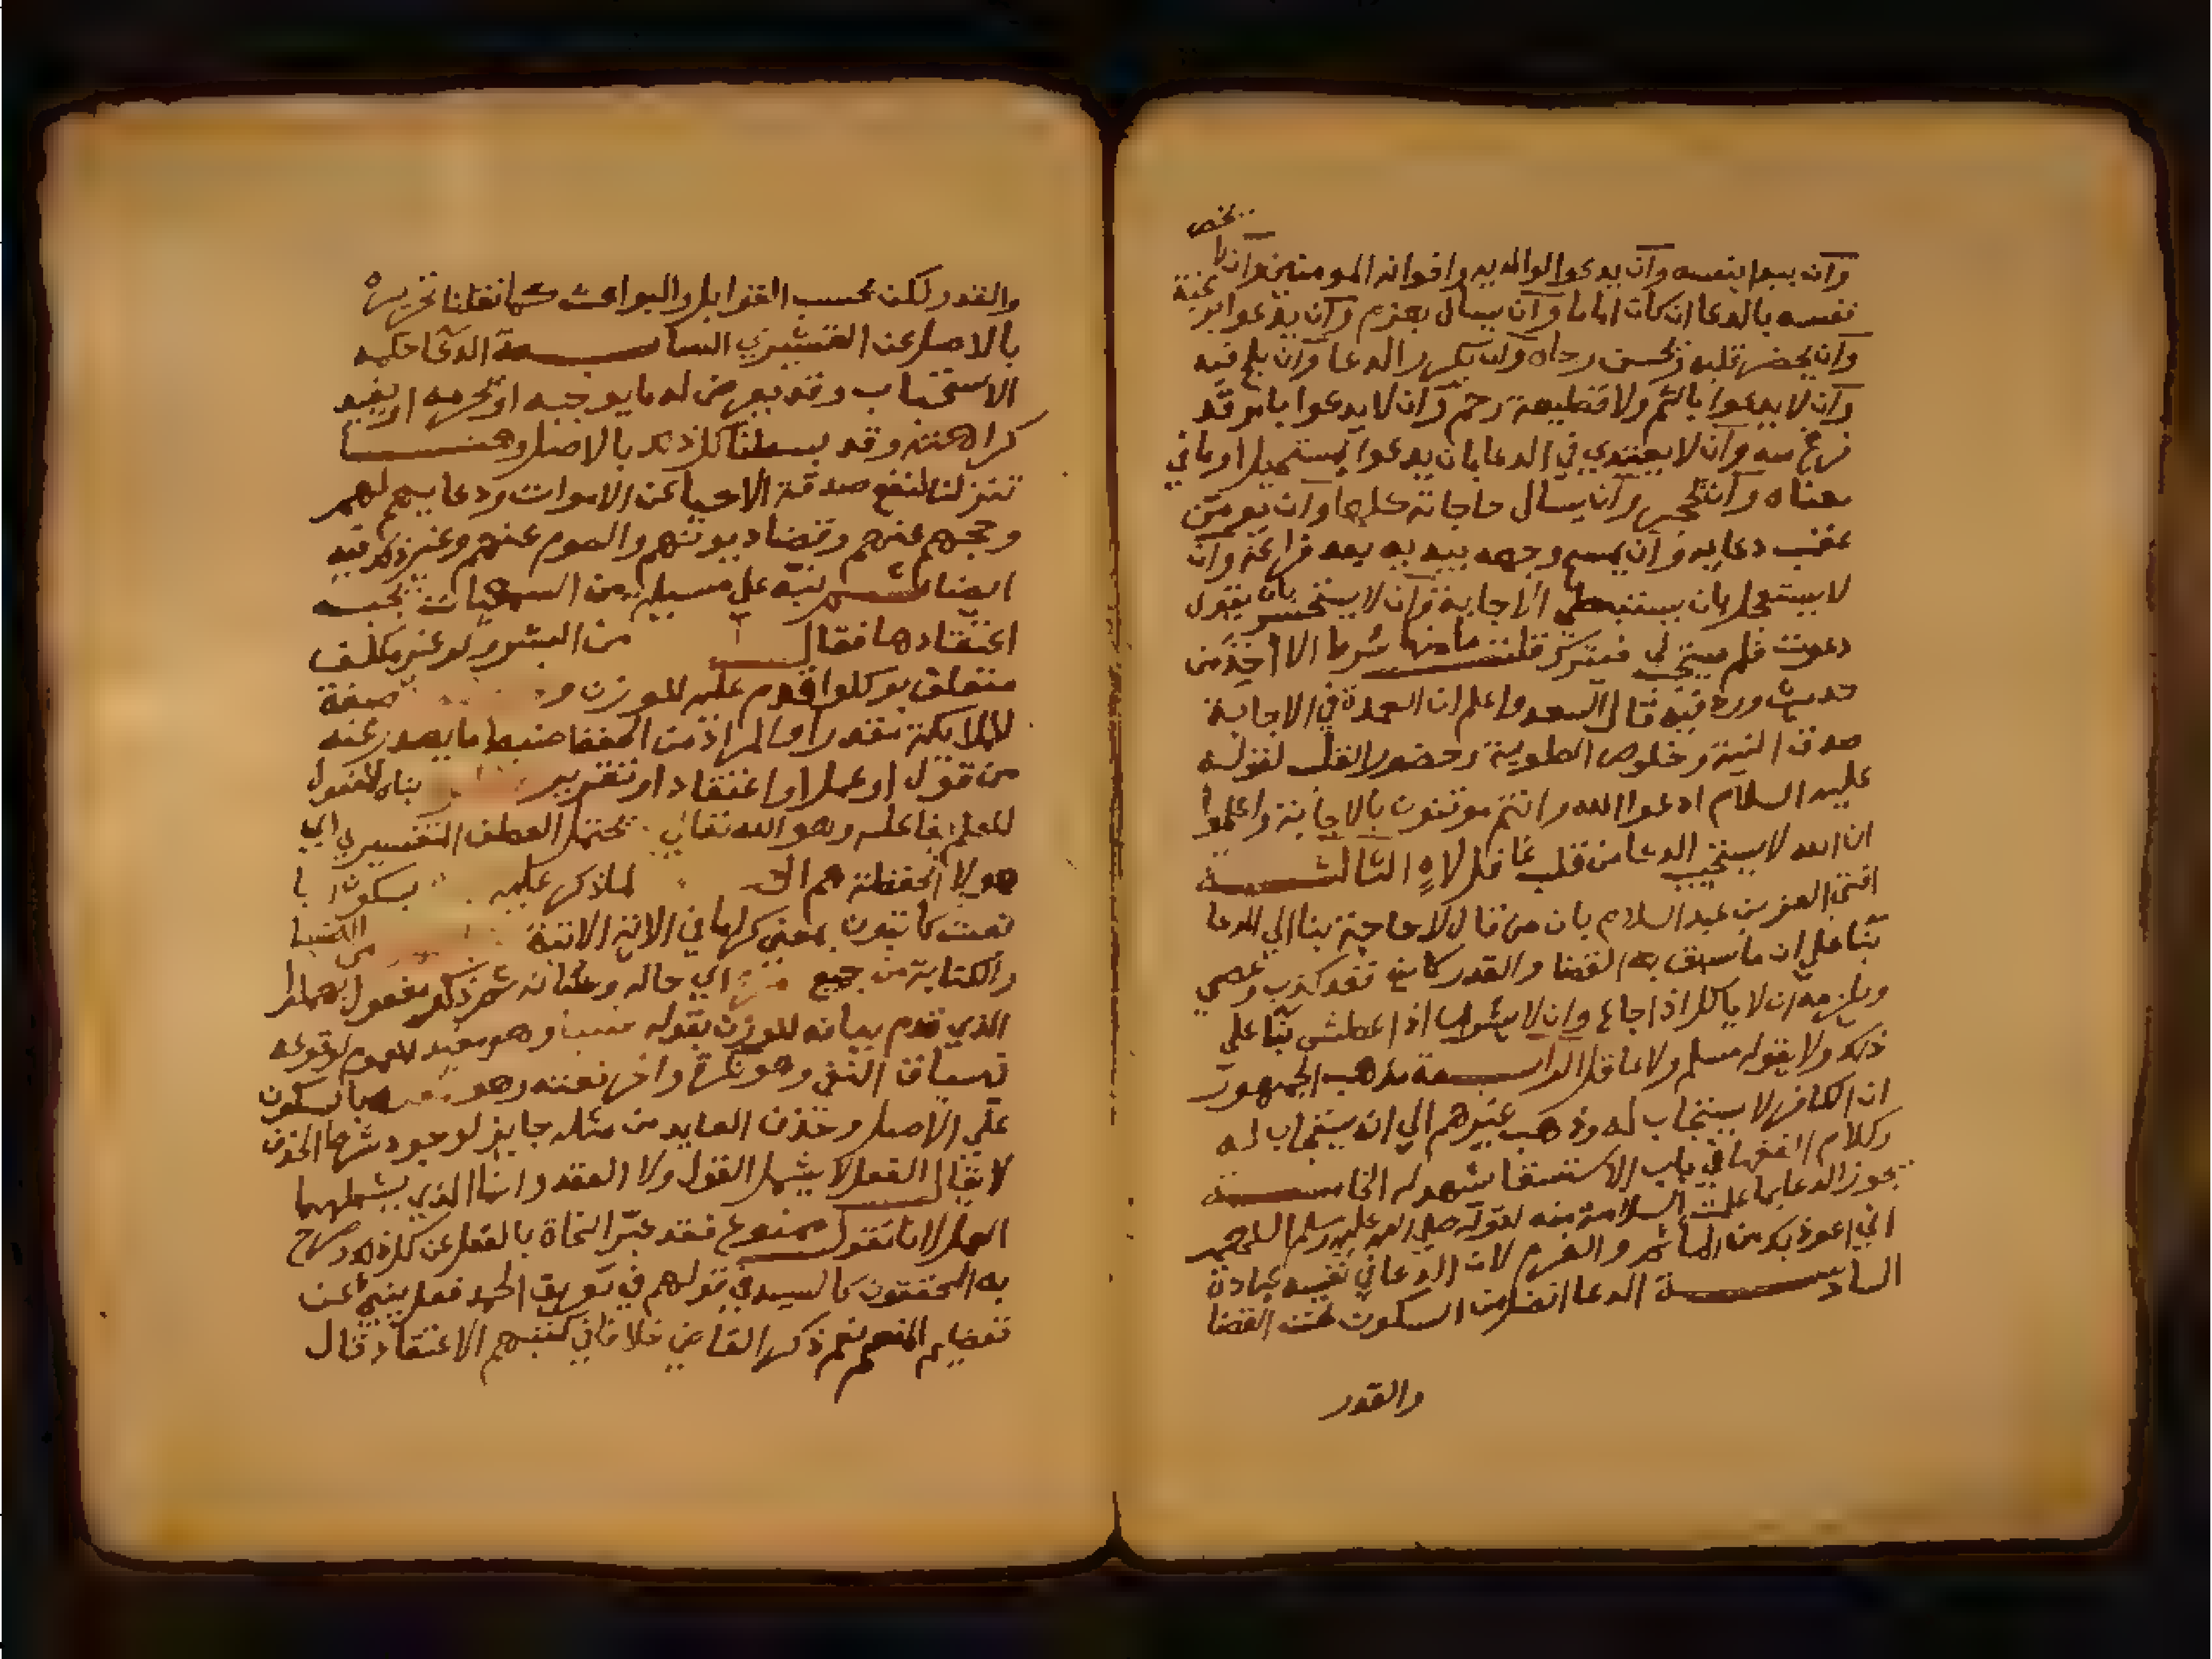 وان يبدا بنفسه وان يدعوا لوالديه واخوانه المومنين وان لا يخص
نفسه بالدعا ان كان اماما وان يسال بعزم وان يدعوا برغبة
وان يحضر قلبه ويحسن رجاه وان يكرر الدعا وان يلح فيه
وان لا يدعوا باثم ولا قطيعة رحم وان لا يدعوا بامر قد
فرغ منه وان لا يعتدي في الدعا بان يدعوا بمستحيل او ما في
معناه وان لا يتحجر وان يسال حاجاته كلها وان يومن
عقب دعايه وان يمسح وجهه بيديه بعد فراغه وان
لا يستعجل بان يستبطي الاجابة وان لا يستحسر بان يقول
دعوت فلم يستجب لي فيترك قلت ما منها شرط الا اخذ من
حديث ورد فيه قال السعد واعلم ان العمدة في الاجابة
صدق النية وخلوص الطوية وحضور القلب لقوله
عليه السلام ادعوا الله وانتم موقنون بالاجابة واعلموا
ان الله لا يستجيب الدعا من قلب غافل لاه الثالثة
افتى العز بن عبد السلام بان من قال لا حاجة بنا الي الدعا
بنا علي ان ما سبق به القضا والقدر كاين فقد كذب وعصي
ويلزمه ان لا ياكل اذا جاع وان لا يشرب اذا عطش بنا علي
ذلك ولا يقوله مسلم ولا عاقل الرابعة مذهب الجمهور
ان الكافر لا يستجاب له وذهب غيرهم الي انه يستجاب له
وكلام الفقها في باب الاستسقا يشهد له الخامسة
يجوز الدعا بما علمت السلامة منه لقوله صلي الله عليه وسلم اللهم
اني اعوذ بك من الماثم والمغرم لان الدعا في نفسه عبادة
السادسة الدعا افضل من السكوت تحت القضا
والقدر
والقدر لكن بحسب القوابل والبواعث كما نقلنا تحريره
بالاصل عن القشيري السابعة الدعا حكمه
الاستحباب وقد يعرض له ما يوجبه او يحرمه او يفيد
كراهته وقد بسطنا كل ذلك بالاصل وهنا
تنزلنا لنفع صدقة الاحيا عن الاموات ودعايهم لهم
وحجهم عنهم وقضا ديونهم والصوم عنهم وغير ذلك فيه
ايضا ثم نبه علي مسيلة من السمعيات يجب
اعتقادها فقال من البشر ولو غير مكلف
متعلق بوكلوا قدم عليه للوزن و صفة
للملايكة مقدرا والمراد من الحفظ ضبط ما يصدر عنه
من قول او عمل او اعتقاد او تقرير بناه للمفعول
للعلم بفاعله وهو الله تعالي يحتمل العطف التفسيري اي
هولا الحفظة هم الذ لما ذكر عليه بسكون ا يا
نعت كاتبون بمعني كلها في الاية الاتية
والكتابة من جميع اي حاله وعكانه ثم ذكر مفعول يهملوا
الذي قدم بيانه للوزن بقوله شيئا وهو مفيد للعموم لوقوعه
سياق النفي وهو نكرة واخر نعته وهو بالسكون
علي الاصل وحذف العايد من مثله جايز لوجود شرط الحذف
لا يقال الفعل لا يشمل القول ولا العقد وانما الذي يشملهما
العمل لانا نقول ممنوع فقد عبر النحاة بالفعل عن كل ذلك وصرح
به المحققون كالسيد في قولهم في تعريف الحمد فعل ينبي عن
تعظيم المنعم نعم ذكر القاضي خلافا في كتبهم الاعتقاد قال